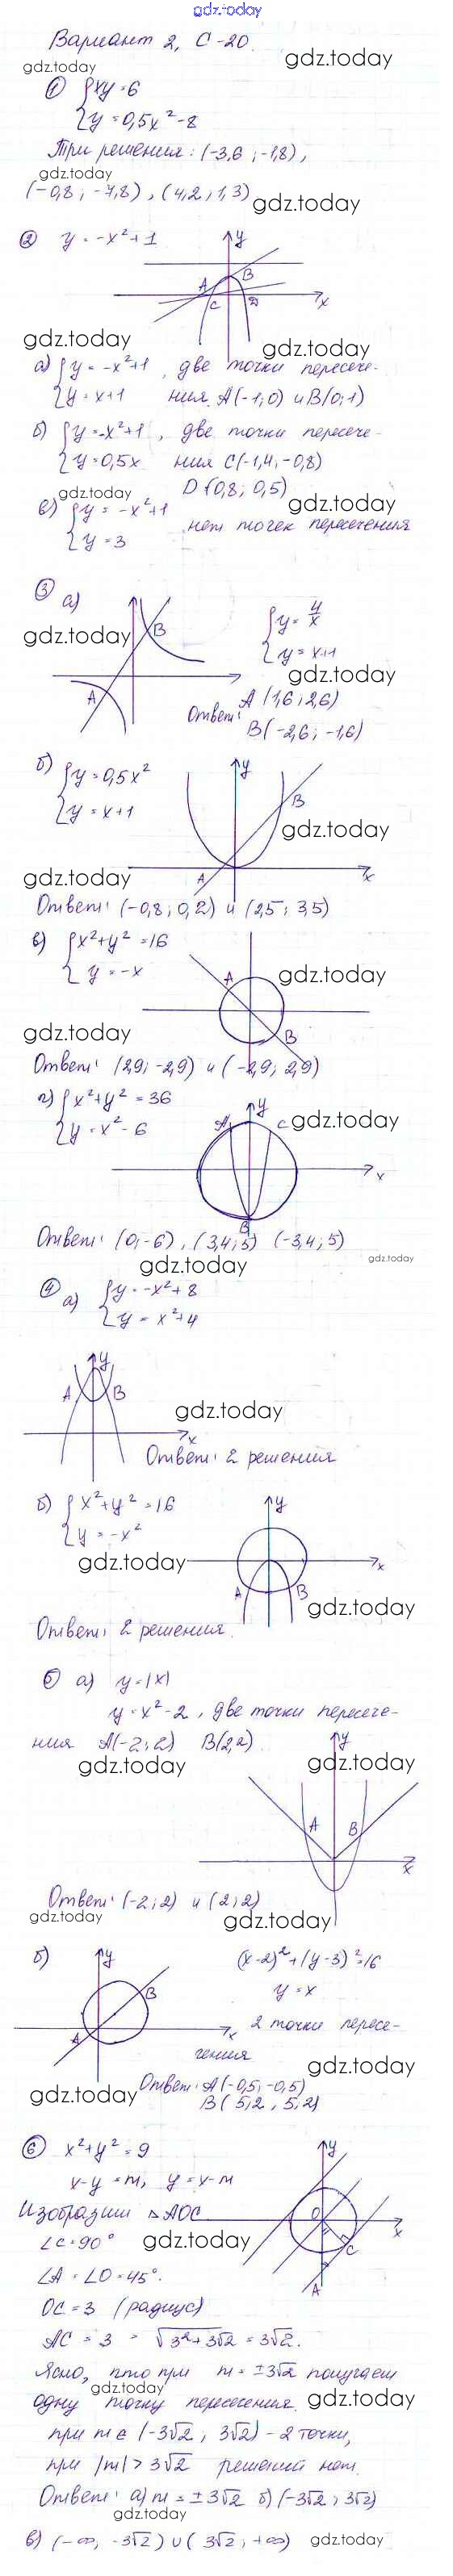 gdz.today
Вариант 2, С-20.
gdz.today
gdz.today
① { xy = 6
{ y = 0,5x² - 8
Три решения: (-3,6 ; -1,8),
gdz.today
(-0,8 ; -7,8), (4,2 ; 1,3)
gdz.today
② y = -x² + 1
y
A B
C D x
gdz.today
gdz.today
а) { y = -x² + 1, две точки пересече-
{ y = x + 1 ния. A(-1; 0) и B(0; 1)
б) { y = -x² + 1, две точки пересече-
{ y = 0,5x ния C(-1,4; -0,8)
D (0,8; 0,5)
gdz.today
gdz.today
в) { y = -x² + 1 нет точек пересечения
{ y = 3
③ а)
{ y = 4/x
{ y = x + 1
gdz.today
B
A
gdz.today
Ответ: A (1,6 ; 2,6)
B(-2,6 ; -1,6)
б) { y = 0,5x²
{ y = x + 1
y
B
A x
gdz.today
gdz.today
Ответ: (-0,8 ; 0,2) и (2,5 ; 3,5)
в) { x² + y² = 16
{ y = -x
A
B
gdz.today
gdz.today
Ответ: (2,9; -2,9) и (-2,9; 2,9)
г) { x² + y² = 36
{ y = x² - 6
y
A C
x
B
gdz.today
Ответ: (0; -6), (3,4; 5) (-3,4; 5)
gdz.today
gdz.today
④ а) { y = -x² + 8
{ y = x² + 4
y
A B
x
gdz.today
Ответ: 2 решения
б) { x² + y² = 16
{ y = -x²
y
x
A B
gdz.today
gdz.today
Ответ: 2 решения.
5 а) y = |x|
y = x² - 2, две точки пересече-
ния A(-2; 2) B(2; 2)
gdz.today
gdz.today
y
A B
x
Ответ: (-2; 2) и (2; 2)
gdz.today
gdz.today
б)
y
B
A x
(x-2)² + (y-3)² = 16
y = x
2 точки пересе-
чения
gdz.today
Ответ: A(-0,5; -0,5)
B(5,2 ; 5,2)
gdz.today
⑥ x² + y² = 9
x - y = m, y = x - m
Изобразим △AOC
∠C = 90°
gdz.today
y
O
x
C
A
∠A = ∠O = 45°.
OC = 3 (радиус)
AC = 3 = √3² + 3√2 = 3√2.
Ясно, что при m = ±3√2 получаем
gdz.today
одну точку пересечения.
gdz.today
при m ∈ (-3√2 ; 3√2) - 2 точки,
при |m| > 3√2 решений нет.
Ответ: а) m = ±3√2 б) (-3√2 ; 3√2)
gdz.today
в) (-∞, -3√2) ∪ (3√2 ; +∞)
gdz.today